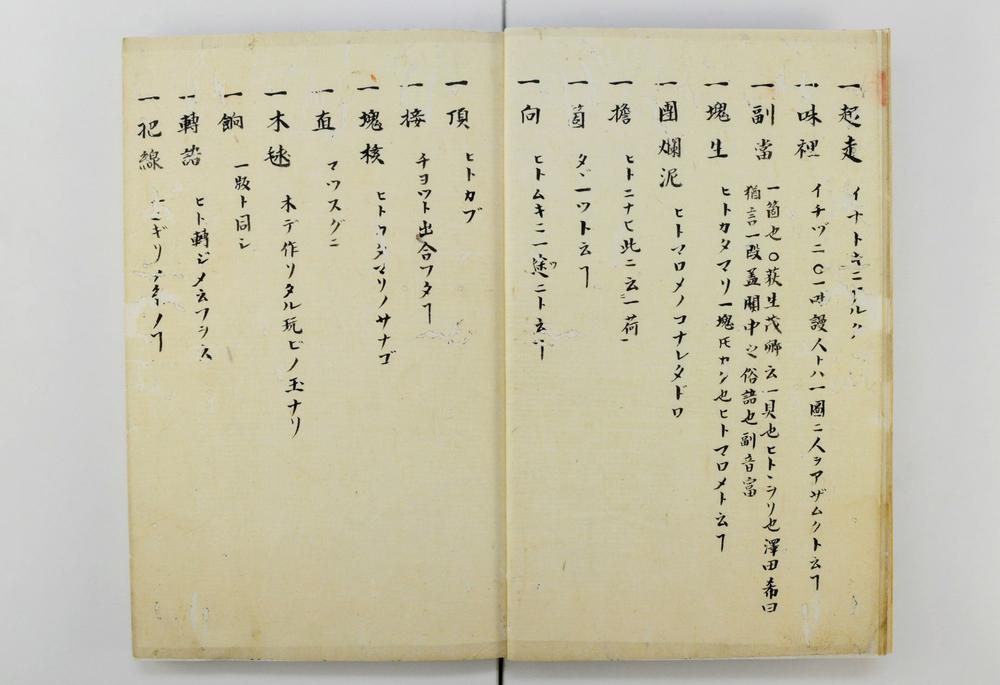 一起走
一味裡 イチヅニ〇一味謾人トハ一國ニ人ヲアザムクト云ヿ
一副當 一箇也〇荻生茂卿云一具也ヒトソリ也澤田希曰
猶言一段蓋關中之俗語也副音富
一塊生 ヒトカタマリ一塊氏カン也ヒトマロメト云ヿ
一團爛泥 ヒトマロメノコナレタドロ
一擔 ヒトニナヒ此ニ云一荷
一箇 タヾ一ツト云ヿ
一向 ヒトムキニ一途ニト云ヿ
一頂 ヒトカブ
一椄 チヨツト出合フタヿ
一塊核 ヒトカタマリノサナゴ
一直 マツスグニ
一木毬 木デ作リタル玩ビノ玉ナリ
一餉 一晌ト同シ
一轉語 ヒト轉ジメ云フ
一祀線